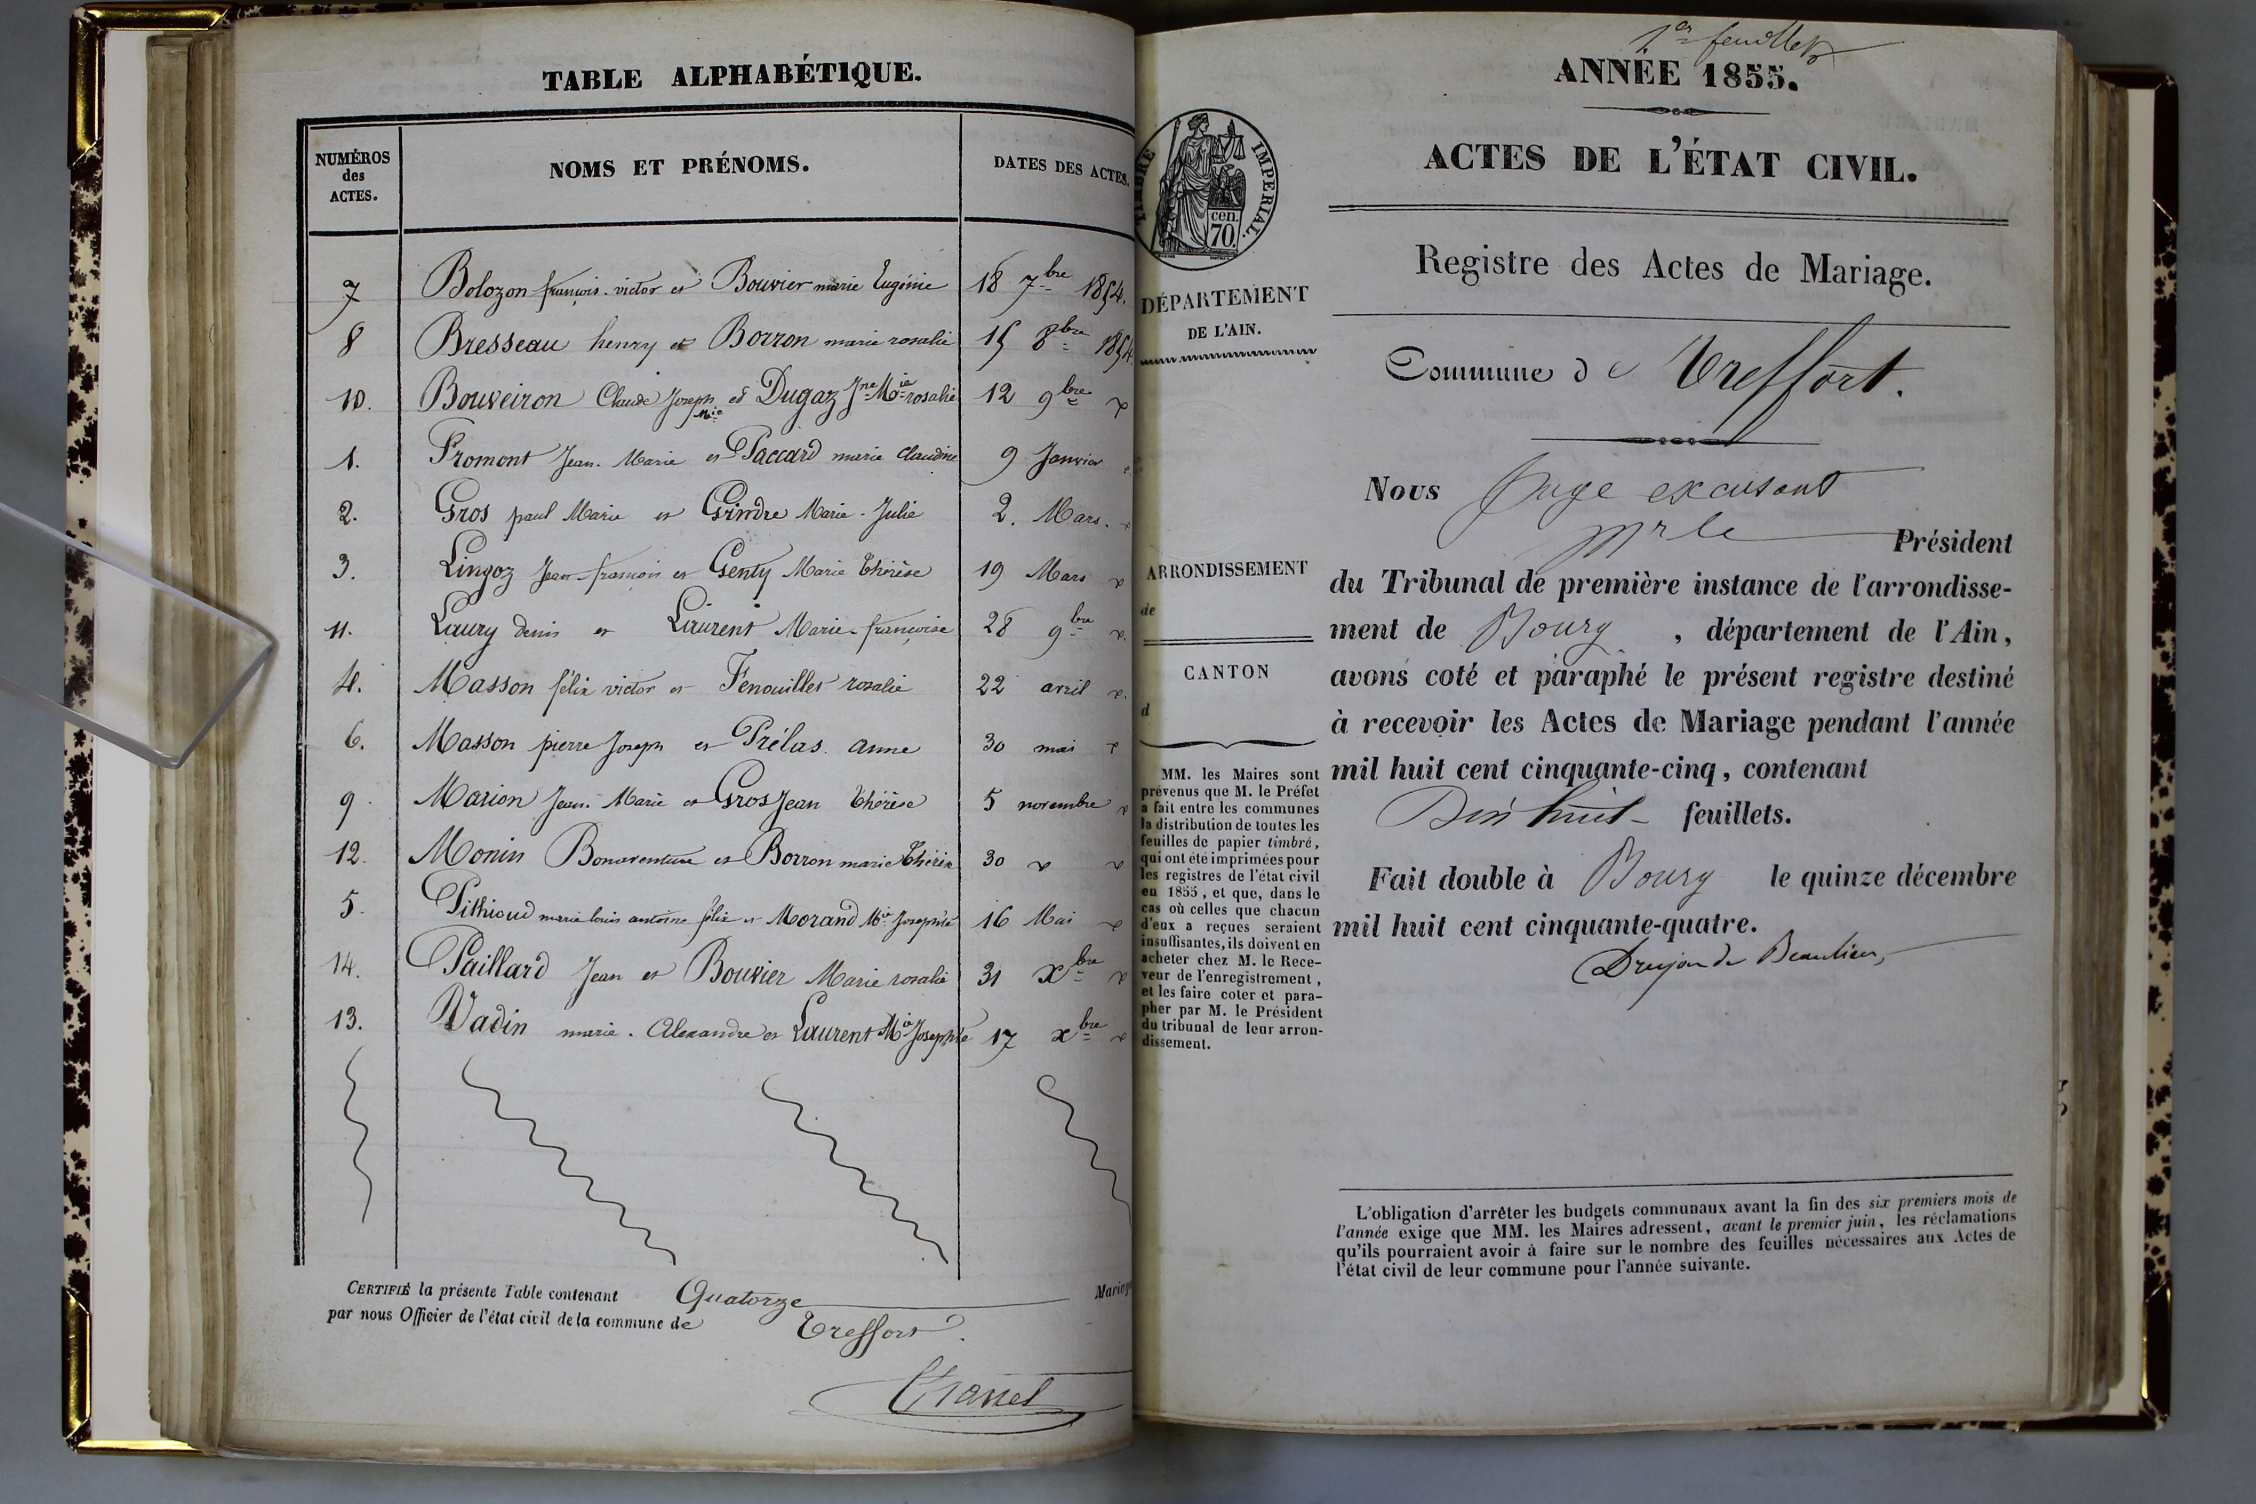 TABLE ALPHABÉTIQUE.
NUMÉROS des ACTES. NOMS ET PRÉNOMS. DATES DES ACTES.
7 Bolozon françois victor et Bouvier marie Eugénie 18 7bre 1854.
8 Bresseau henry et Borron marie rosalie 15 8bre 1854
10. Bouveiron Claude Joseph Mie et Dugaz Jne Mie rosalie 12 9bre
1. Fromont Jean Marie et Paccard marie Claudine 9 Janvier
2. Gros paul Marie et Grindre Marie-Julie 2. Mars.
3. Lingoz Jean-françois et Genty Marie Thérèse 19 Mars
11. Laury denis et Laurent Marie-françoise 28 9bre
4. Masson félix victor et Fenouillet rosalie 22 avril
6. Masson pierre Joseph et Prélas anne 30 mai
9. Marion Jean-Marie et GrosJean Thérèse 5 novembre
12. Monin Bonaventure et Borron marie Thérèse 30
5. Pithioud marie louis antoine félix et Morand Mie Josephte 16 Mai
14. Paillard Jean et Bouvier Marie rosalie 31 Xbre
13. Vadin marie-Alexandre et Laurent Mie Josephte 17 Xbre
CERTIFIÉ la présente Table contenant Quatorze
par nous Officier de l'état civil de la commune de Treffort.
1er feuillet
ANNÉE 1855.
ACTES DE L'ÉTAT CIVIL.
TIMBRE IMPERIAL.
cen.
70.
Registre des Actes de Mariage.
DÉPARTEMENT
DE L'AIN.
Commune de Treffort.
Nous Juge
Mr le Président
ARRONDISSEMENT
de
CANTON
d
du Tribunal de première instance de l'arrondisse-
ment de Bourg, département de l'Ain,
avons coté et paraphé le présent registre destiné
à recevoir les Actes de Mariage pendant l'année
mil huit cent cinquante-cinq, contenant
Dix huit feuillets.
Fait double à Bourg le quinze décembre
mil huit cent cinquante-quatre.
Drujon de Beaulieu
MM. les Maires sont
prévenus que M. le Préfet
a fait entre les communes
la distribution de toutes les
feuilles de papier timbré,
qui ont été imprimées pour
les registres de l'état civil
en 1855, et que, dans le
cas où celles que chacun
d'eux a reçues seraient
insuffisantes, ils doivent en
acheter chez M. le Rece-
veur de l'enregistrement,
et les faire coter et para-
pher par M. le Président
du tribunal de leur arron-
dissement.
L'obligation d'arrêter les budgets communaux avant la fin des six premiers mois de
l'année exige que MM. les Maires adressent, avant le premier juin, les réclamations
qu'ils pourraient avoir à faire sur le nombre des feuilles nécessaires aux Actes de
l'état civil de leur commune pour l'année suivante.